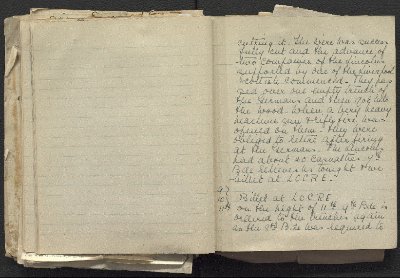 cutting it. The wire was success
fully cut and the advance of
two companies of the Lincolns
supported by one of the Liverpool
Scottish commenced. They pas
sed over one empty trench of
the Germans and then got into
the wood. When a very heavy
machine gun & rifle fire was
opened on them. They were
obliged to retire after firing
at the Germans. The Lincolns
had about 40 casualties. 9th
Bde relieves us tonight & we
billet at LOCRE.
9th
10th Billet at LOCRE
11th On the night of 11th 7th Bde is
ordered to the trenches again
as the 9th Bde was required to